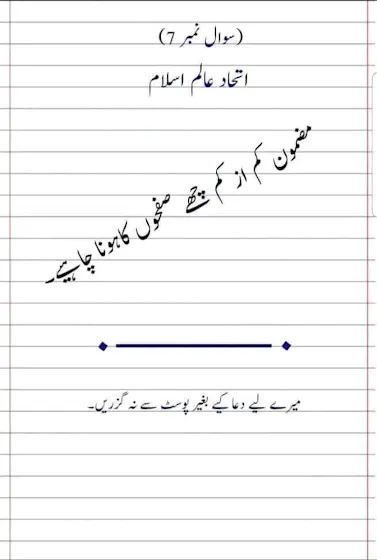 (سوال نمبر 7)
اتحاد عالم اسلام
مضمون کم از کم چھے صفحوں کا ہونا چاہیے۔
میرے لیے دعا کیے بغیر پوسٹ سے نہ گزریں۔